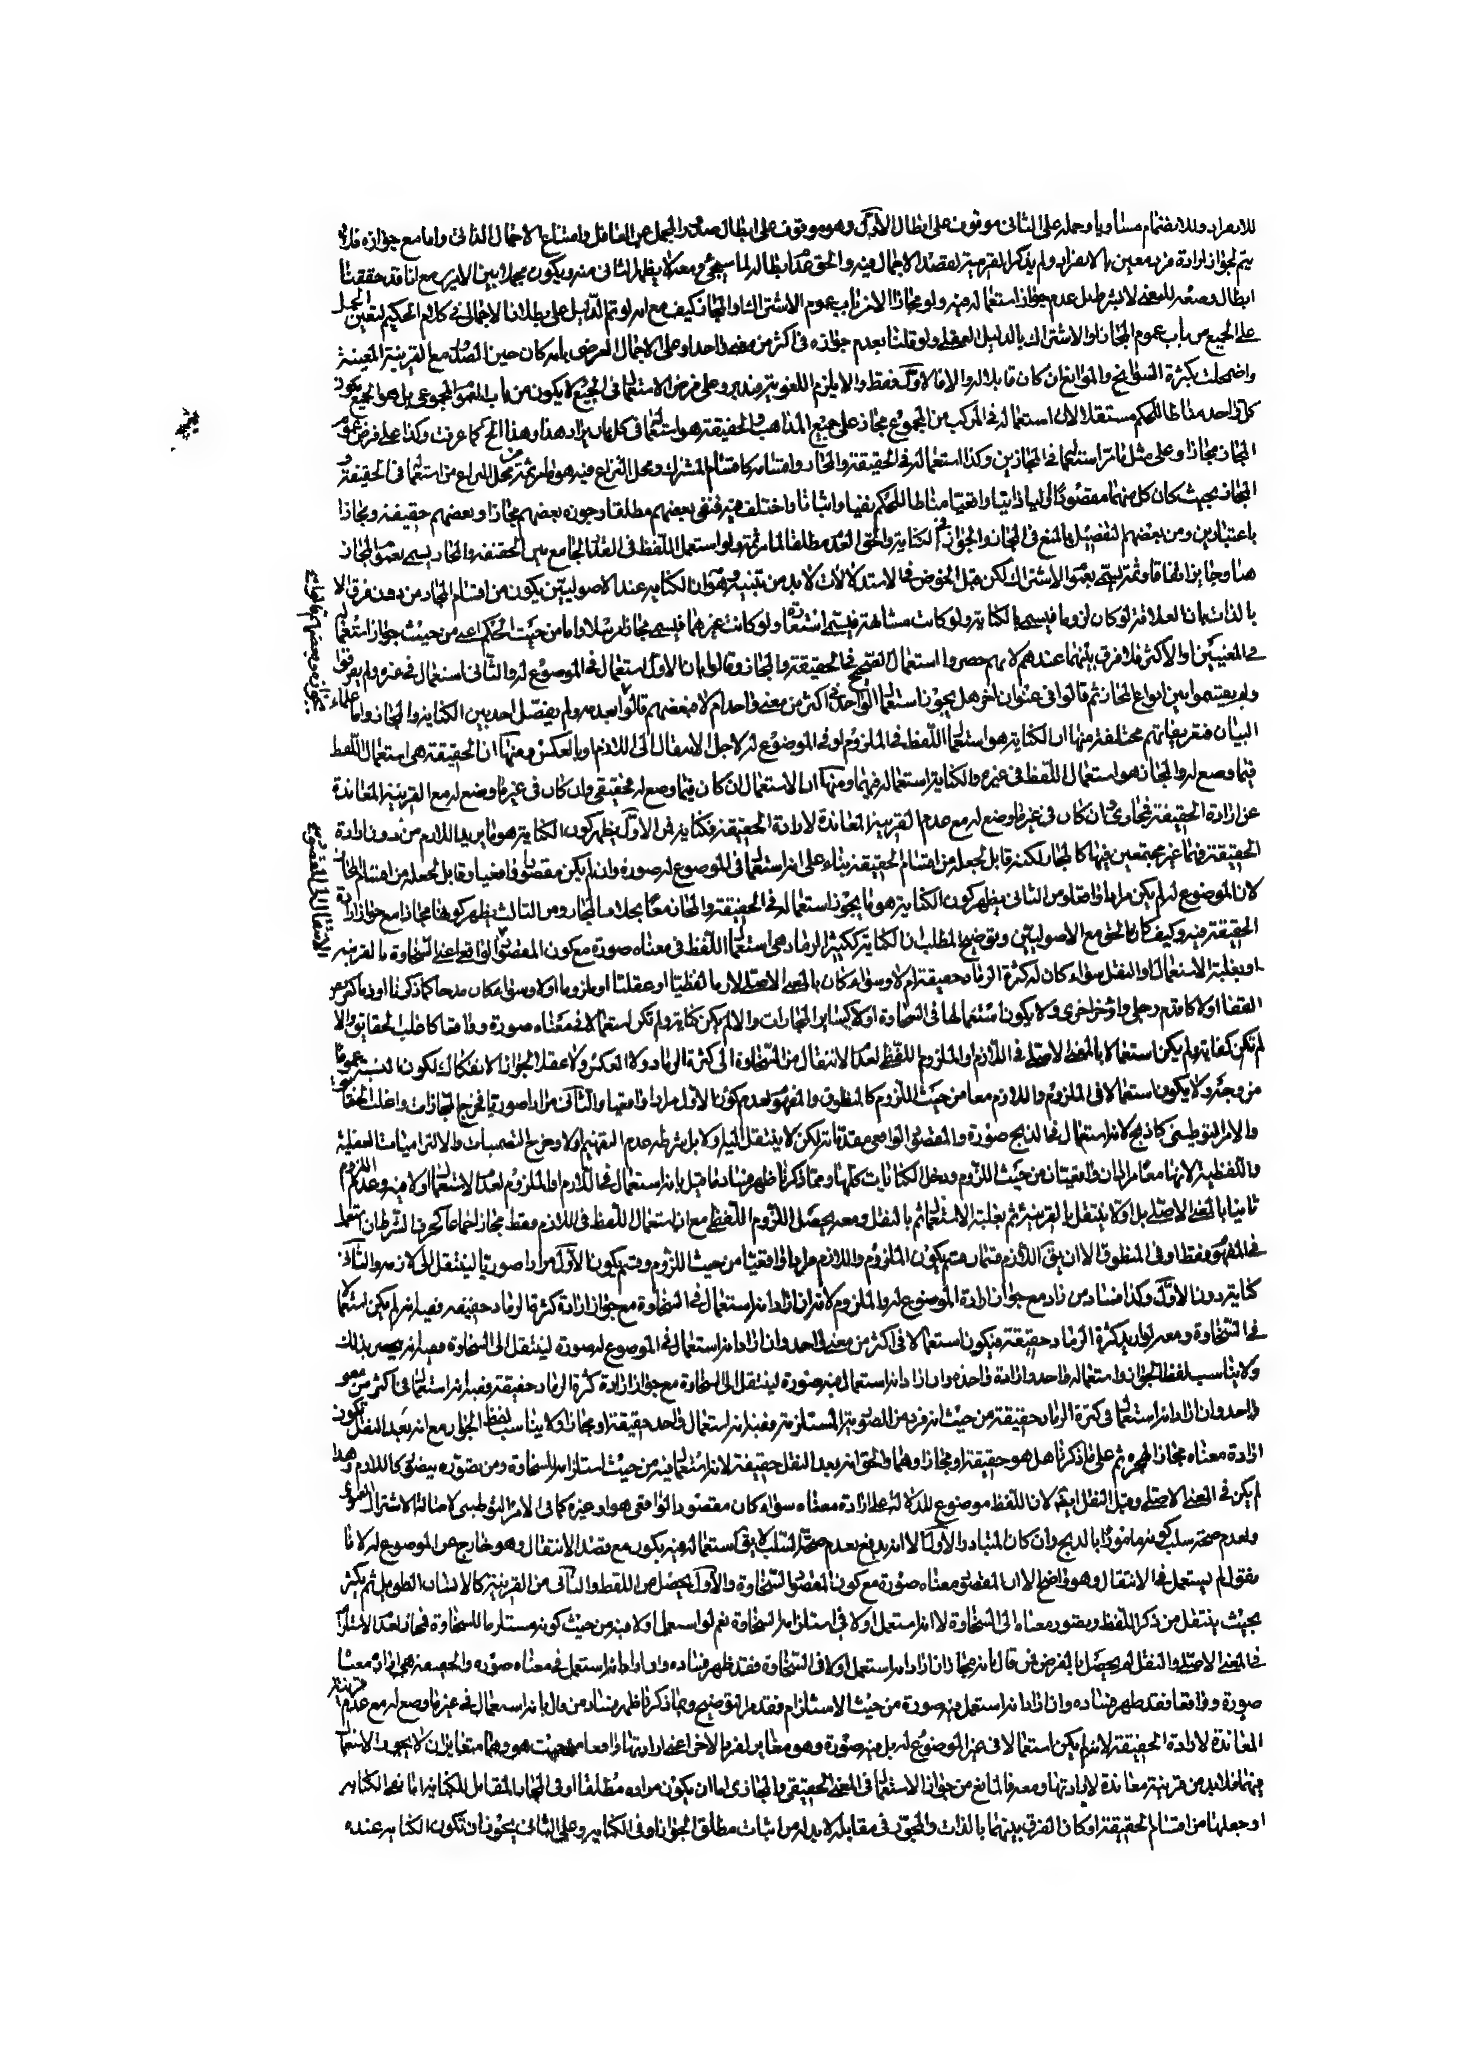 للانفراد وللانضمام مساويا وحمله على الثانى موقوف على ابطال الاول وهو موقوف على ابطال صدور المجمل عن العاقل وامتناع الاجمال الذاتى واما مع جوازه فلا
يتم لجواز ارادة فرد معين بالانفراد ولم يذكر القرينة لقصد الاجمال فيه والحق عدم ابطاله لما سيجئ ومعه لا يظهر الثانى منه ويكون مجملا بين الامرين مع انا قد حققنا
ابطال وضعه للمعنى لا بشرط بل عدم جواز استعماله فيه ولو مجازا الا من باب عموم الاشتراك او المجاز كيف مع انه لو تم الدليل على بطلان الاجمال فى كلام الحكيم لتعين الحمل
على الجميع من باب عموم المجاز او الاشتراك بالدليل العقلى ولو قلنا بعدم جوازه فى اكثر من معنى واحد وعلى الاجمال العرضى بانه كان حين الصدور مع القرينة المعينة
واضمحلت بكثرة السوانح والموانع ان كان قابلا له والا فالاول فقط والا يلزم اللغوية وعلى فرض الاستعمال فى الجميع لا يكون من باب العموم المجموعى بل هو الجميع يكون
كل واحد مناطا للحكم مستقلا لان استعماله فى المركب من المجموع مجاز على جميع المذاهب والحقيقة هو استعماله فى كل بان يراد هذا وهذا الخ كما عرفت وكذا على فرض عموم
المجاز مجازا وعلى مثل ما مر استعماله فى المجازين وكذا استعماله فى الحقيقة والمجاز واقسامه كاقسام المشترك ومحل النزاع فيه هو ما مر ثمة من محل النزاع من استعماله فى الحقيقة و
المجاز بحيث كان كل منهما مقصودا اوليا ذاتيا واقعيا مناطا للحكم نفيا واثباتا واختلف فيه فنفى بعضهم مطلقا وجوزه بعضهم مجازا وبعضهم حقيقة ومجازا
باعتبارين ومن بعضهم التفصيل بالمنع فى المجاز والجواز فى الكناية والحق العدم مطلقا لما مر ثمة ولو استعمل اللفظ فى القدر الجامع بين الحقيقة والمجاز يسمى بعموم المجاز
هنا وجايز اتفاقا وثمة يسمى بعموم الاشتراك لكن قبل الخوض فى الاستدلالات لا بد من تنبيه وهو ان الكناية عند الاصوليين يكون من اقسام المجاز من دون فرق الا
بالذات بان العلاقة لو كان لزوما فيسمى بالكناية ولو كانت مشابهة فيسمى استعارة ولو كانت غيرهما فيسمى مجازا مرسلا واما من حيث الحكم اعنى من حيث جواز استعماله
فى المعنيين او الاكثر فلا فرق بينهما عندهم لانهم حصروا استعمال الصحيح فى الحقيقة والمجاز وقالوا بان الاول استعمال فى الموضوع له والثانى استعمال فى غيره ولم يفرقوا
ولم يقيموا بين انواع المجاز ثم قالوا فى عنوان اخر هل يجوز استعمال الواحد فى اكثر من معنى واحد ام لا فبعضهم قالوا بعدمه ولم يفصل احد بين الكناية والمجاز واما علماء
البيان فتعريفاتهم مختلفة منها ان الكناية هو استعمال اللفظ فى الملزوم او فى الموضوع له لاجل الانتقال الى اللازم او بالعكس ومنها ان الحقيقة هى استعمال اللفظ
فيما وضع له والمجاز هو استعمال اللفظ فى غيره والكناية استعماله فيهما ومنها ان الاستعمال ان كان فيما وضع له فحقيقى وان كان فى غير ما وضع له مع القرينة المعاندة
عن ارادة الحقيقة فمجازى وان كان فى غير ما وضع له مع عدم القرينة المعاندة لارادة الحقيقة فكناية فمن الاول يظهر كون الكناية هو ما يريد اللازم من دون ارادة
الحقيقة فهما غير مجتمعين فيها كالمجاز لكنه قابل لجعله من اقسام الحقيقة بناء على انه استعمال فى الموضوع له صورة وان لم يكن مقصودا واقعيا وقابل لجعله من اقسام المجاز
لان الموضوع له لم يكن مرادا واقعا ومن الثانى يظهر كون الكناية هو ما يجوز استعماله فى الحقيقة والمجاز معا بخلاف المجاز ومن الثالث يظهر كونها مجازا مع جواز ارادة
الحقيقة فيه وكيف كان الحق مع الاصوليين وتوضيح المطلب ان الكناية ككثير الرماد هى استعمال اللفظ فى معناه صورة مع كون المقصود الواقعى اعنى السخاوة بالقرينة
او بغلبة الاستعمال او النقل سواء كان له كثرة الرماد حقيقة ام لا وسواء كان بالمعنى الاصلى لازما لفظيا او عقليا او ملزوما اولا وسواء كان مدحا كما ذكرنا او ذما كعريض
القفا اولا كاقدم رجلى واؤخر اخرى ولا يكون استعمالها فى السخاوة اولا كساير المجازات والا لم يكن كناية ولم تكن استعمالا فى معناه صورة وواقعا كاغلب الحقايق والا
لم تكن كناية ولم يكن استعمالا بالمعنى الاصلى فى اللازم والملزوم اللفظى لعدم الانتقال من السخاوة الى كثرة الرماد ولا العكس ولا عقلا لجواز الانفكاك لكون النسبة عموما
من وجه ولا يكون استعمالا فى الملزوم واللازم معا من حيث اللزوم كالمنطوق والمفهوم لعدم كون الاول مرادا واقعيا والثانى مرادا صوريا فخرج المجازات واغلب الحقايق
والامر التوطينى كاذبح لانه استعمال فى الذبح صورة والمقصود الواقعى مقدماته لكن لا ينتقل اليه اولا بل بشرط عدم التفهيم اولا وخرج التضمنيات والالتزاميات العقلية
واللفظية لانهما معا مرادان واقعيتان من حيث اللزوم ودخل الكنايات كلها ومما ذكرنا ظهر فساد ما قيل بانه استعمال فى اللازم والملزوم لعدم الاستعمال اولا فيه وعدم اللزوم
ثانيا بالمعنى الاصلى بل اولا ينتقل بالقرينة ثم بغلبة الاستعمال ثم بالنقل ومعه يحصل اللزوم اللفظى مع ان استعمال اللفظ فى اللازم فقط مجاز اجماعا كحرف الشرط ان استعمل
فى المفهوم فقط او فى المنطوق الا ان يق اللازم قسمان قسم يكون الملزوم واللازم مرادا واقعيا من حيث اللزوم وقسم يكون الاول مرادا صوريا لينتقل الى لازمه والثانى
كناية دون الاول وكذا فساد من زاد مع جواز ارادة الموضوع له والملزوم لانه ان ارادا انه استعمال فى السخاوة مع جواز ارادة كثرة الرماد حقيقة ففيه انه لم يكن استعمالا
فى السخاوة ومعه لو اريد كثرة الرماد حقيقة فيكون استعمالا فى اكثر من معنى واحد وان ارادا انه استعمال فى الموضوع له صورة لينتقل الى السخاوة ففيه انه يصير بذلك
ولا يناسب لفظ الجواز واستعماله واحد وارادة واحدة وان ارادا انه استعمال فيه صورة لينتقل الى السخاوة مع جواز ارادة كثرة الرماد حقيقة ففيه انه استعمال فى اكثر من معنى
واحد وان ارادا انه استعمال فى كثرة الرماد حقيقة من حيث انه فرد من الصورية المستلزمة ففيه انه استعمال واحد حقيقة او مجاز ولا يناسب لفظ الجواز مع انه بعد النقل تكون
ارادة معناه مجازا لهجره ثم على ما ذكرنا هل هو حقيقة او مجاز او هما والحق انه بعد النقل حقيقة لانه استعمال فيه من حيث استلزامه للسخاوة ومن صوره بيضى كاللازم وهذا
لم يكن فى المعنى الاصلى وقبل النقل ايضا لان اللفظ موضوع للدلالة على ارادة معناه سواء كان مقصودا الواقعى هو او غيره كما فى الامر التوطينى لاصالة الاشتراك المعنوى
ولعدم صحة سلب كونه مامورا بالذبح وان كان المتبادر الاول الا انه يدفع بعدم صحة السلب لا يق استعماله فيه يكون مع قصد الانتقال وهو خارج عن الموضوع له لانا
نقول لم يستعمل فى الانتقال وهو واضح الا ان المقصود معناه صورة مع كون المقصود السخاوة والاول يحصل من اللفظ والثانى من القرينة كالانسان الطويل ثم يكثر
بحيث ينتقل من ذكر اللفظ وبصوره معناه الى السخاوة لا انه استعمل اولا فى استلزامه السخاوة نعم لو استعمل اولا فيه من حيث كونه مستلزما للسخاوة فمجاز لعدم الاستلزام
فى المعنى الاصلى والنقل لم يحصل بالفرض فمن قال بانه مجاز ان ارادا انه استعمل اولا فى السخاوة فقد ظهر فساده وان ارادا انه استعمل فى معناه صورة والحقيقة هى ارادة معناه
صورة وواقعا فقد ظهر فساده وان ارادا انه استعمل فيه صورة من حيث الاستلزام فقد مر التوضيح وبما ذكرنا ظهر فساد من قال بانه استعمال فى غير ما وضع له مع عدم قرينة
المعاندة لارادة الحقيقة لانه لم يكن استعمالا فى غير الموضوع له بل فيه صورة وهو مغاير لفرد الاخر اعنى ارادتها واقعا من حيث هو وهما متغايران لا يجوز الاستعمال
فيهما فلا بد من قرينة معاندة لارادتها ومعه فالمانع من جواز الاستعمال فى المعنى الحقيقى والمجازى اما ان يكون مراده مطلقا او فى المجاز المقابل للكناية اما نفى الكناية
او جعلها من اقسام الحقيقة او كان الفرق بينهما بالذات والمجوز فى مقابله لا بد له من اثبات مطلق الجواز او فى الكناية وعلى الثانى يجوز ان تكون الكناية عنده